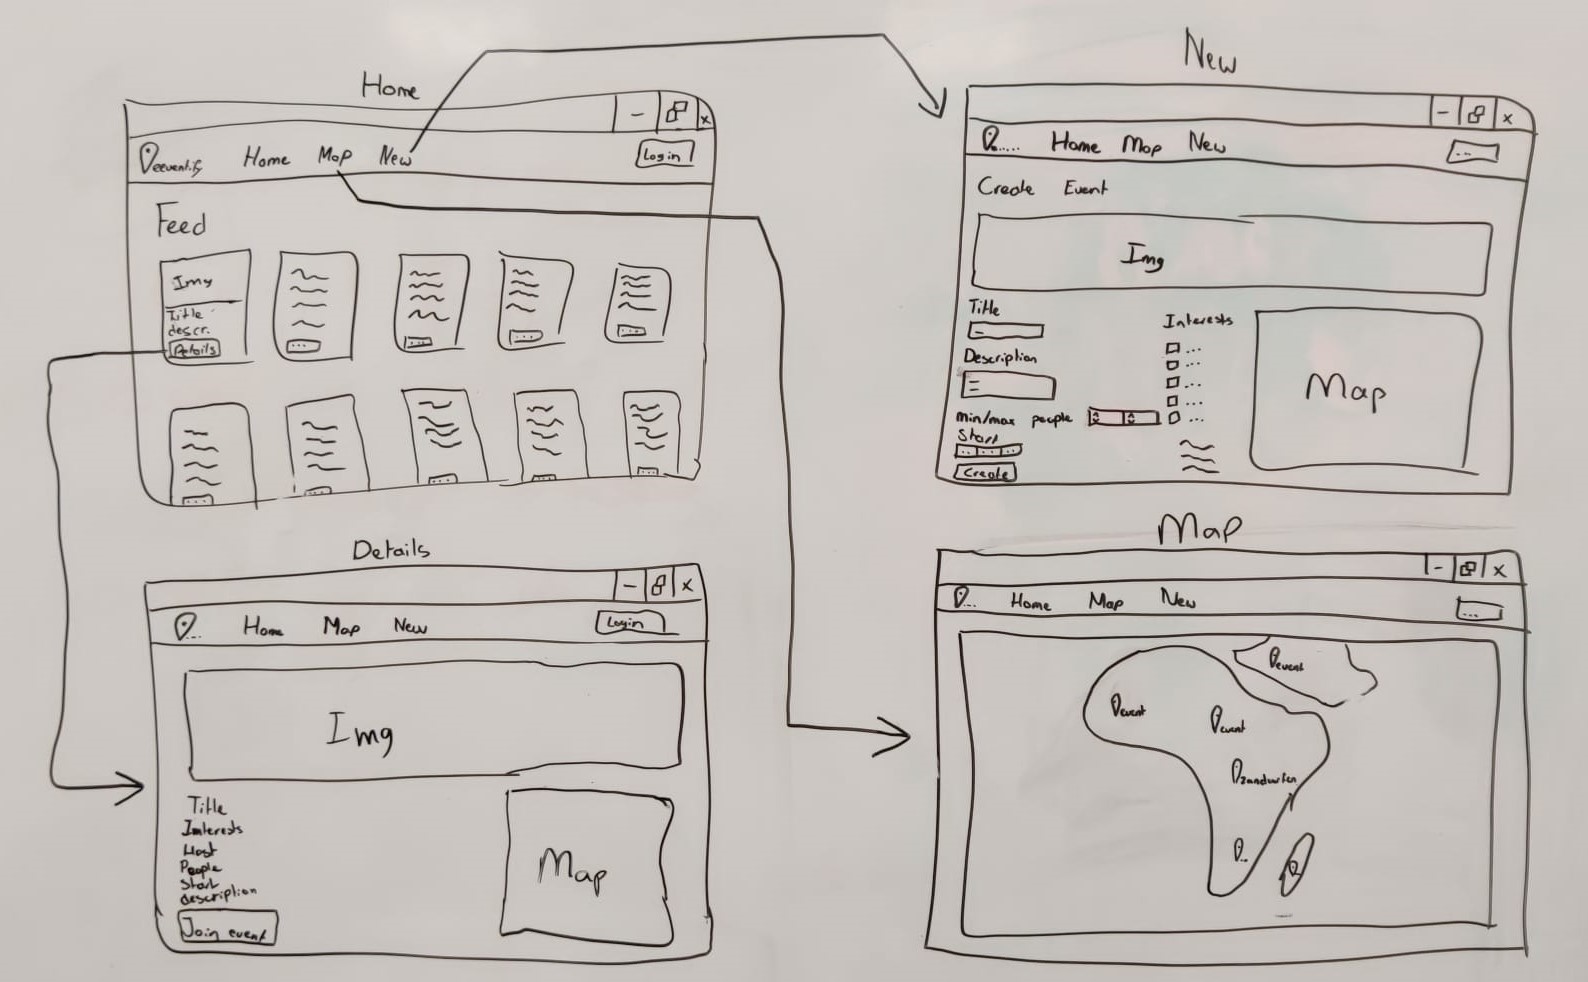 Home
- x
eventify Home Map New Login
Feed
Img
Title
descr.
Details
...
...
...
...
...
...
...
...
...
New
- x
...... Home Map New ...
Create Event
Img
Title
Description
min/max people
Start
Create
Interests
...
...
...
...
...
Map
Details
- x
... Home Map New Login
Img
Title
Interests
Host
People
Start
description
Join event
Map
Map
- x
... Home Map New ...
event
event
event
..